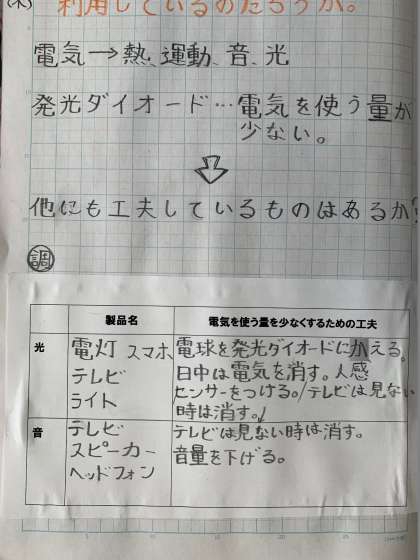 (木) 利用しているのだろうか。
電気→熱、運動、音、光
発光ダイオード…電気を使う量が
少ない。
他にも工夫しているものはあるか?
調
製品名 電気を使う量を少なくするための工夫
光 電灯 スマホ 電球を発光ダイオードにかえる。
テレビ 日中は電気を消す。人感
ライト センサーをつける。/テレビは見ない
時は消す。/
音 テレビ テレビは見ない時は消す。
スピーカー 音量を下げる。
ヘッドフォン